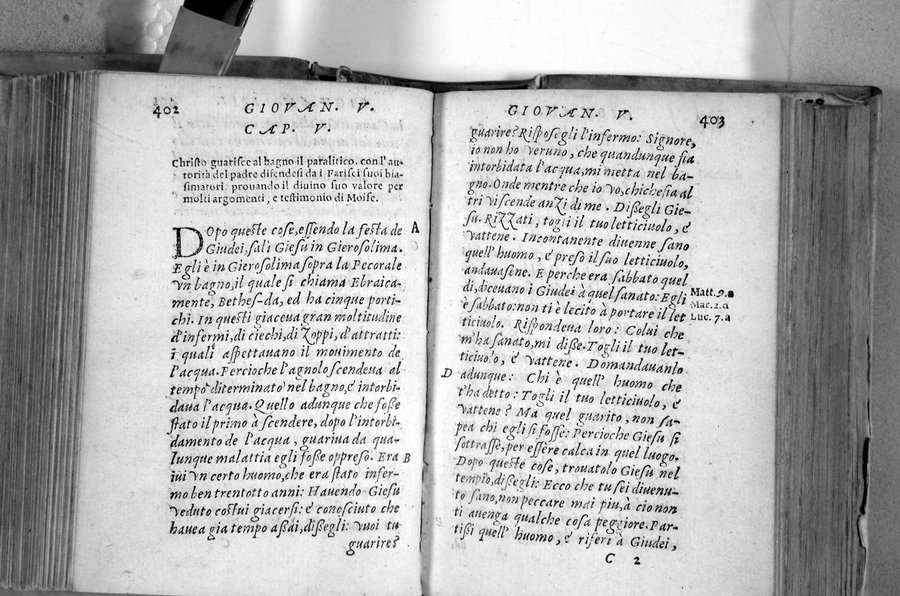 402
GIOVAN. V.
CAP. V.
Christo guarisce al bagno il paralitico. con l'au-
torità del padre difendesi da i Farisei suoi bia-
simatori. prouando il diuino suo valore per
molti argomenti, e testimonio di Moise.
Dopo queste cose, essendo la festa de A
Giudei, salì Giesu in Gierosolima.
Egli è in Gierosolima sopra la Pecorale
vn bagno, il quale si chiama Ebraica-
mente, Bethes-da, ed ha cinque porti-
chi. In questi giaceua gran moltitudine
d'infermi, di ciechi, di Zoppi, d'attratti:
i quali aspettauano il mouimento de
l'acqua. Percioche l'agnolo scendeua al
tempo diterminato nel bagno, e intorbi-
daua l'acqua. Quello adunque che fosse
stato il primo à scendere, dopo l'intorbi-
damento de l'acqua, guariua da qua-
lunque malattia egli fosse oppreso. Era B
iui vn certo huomo, che era stato infer-
mo ben trentotto anni: Hauendo Giesu
veduto costui giacersi: e conosciuto che
hauea gia tempo assai, dissegli: vuoi tu
guarire?
GIOVAN. V.
403
guarire? Rispose gli l'infermo: Signore,
io non ho veruno, che quandunque sia
intorbidata l'acqua, mi metta nel ba-
gno. Onde mentre che io vo, chichesia al
tri vi scende anzi di me. Dissegli Gie-
su. Rizzati, togli il tuo letticiuolo, e
vattene. Incontanente diuenne sano
quell' huomo, e preso il suo letticiuolo,
andauasene. E perche era sabbato quel
di, diceuano i Giudei à quel sanato: Egli Matt. 9. a
è sabbato: non ti è lecito à portare il let Mar. 2. a
ticiuolo. Rispondeua loro: Colui che Luc. 7. a
m'ha sanato, mi disse. Togli il tuo let-
ticiuolo, e vattene. Domandauanlo
D adunque: Chi è quell' huomo che
t'ha detto: Togli il tuo letticiuolo, e
vattene? Ma quel guarito, non sa-
pea chi egli si fosse: Percioche Giesu si
sottrasse, per essere calca in quel luogo.
Dopo queste cose, trouatolo Giesu nel
tempio, dissegli: Ecco che tu sei diuenu-
to sano, non peccare mai piu, à cio non
ti auenga qualche cosa peggiore. Par-
tissi quell' huomo, e riferì à Giudei,
C 2